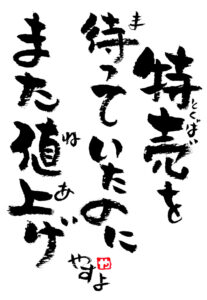 特売を
とくばい
待っていたのに
ま
また値上げ
ね あ
やすよ
や